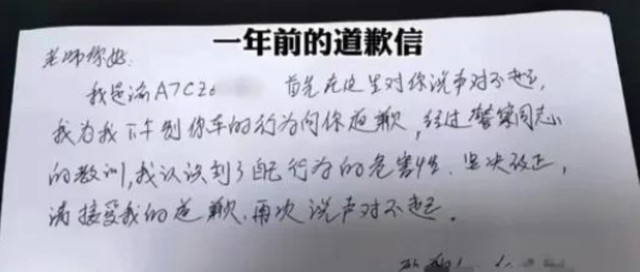 一年前的道歉信
老师你好:
我是渝A7CZ6 首先在这里对你说声对不起,
我为我下午别你车的行为向你道歉,经过警察同志
的教训,我认识到了行为的危害性.坚决改正,
请接受我的道歉.再次说声对不起。